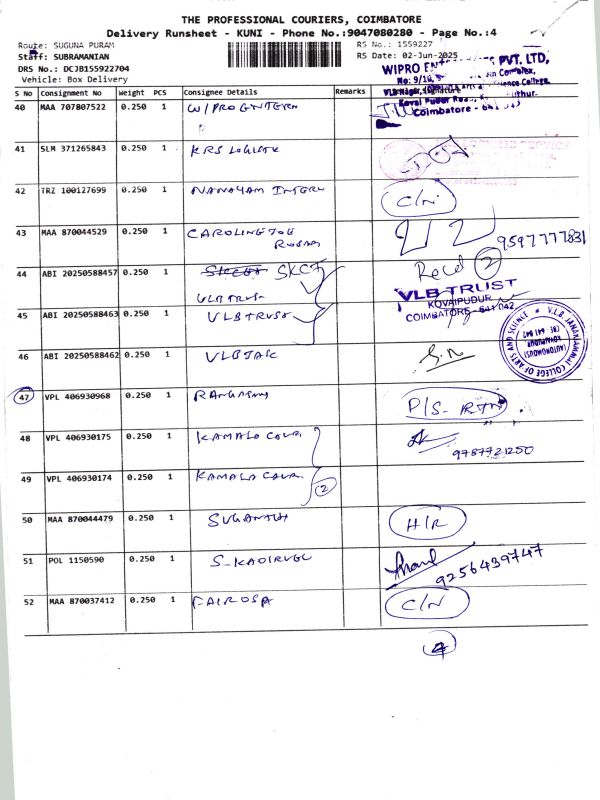 THE PROFESSIONAL COURIERS, COIMBATORE
Delivery Runsheet - KUNI - Phone No.:9047080280 - Page No.:4
Route: SUGUNA PURAM
RS No.: 1559227
Staff: SUBRAMANIAN
RS Date: 02-Jun-2025
DRS No.: DCJB155922704
Vehicle: Box Delivery
WIPRO ENTERPRISES PVT. LTD,
Coimbatore - 641
S No Consignment No Weight PCS Consignee Details Remarks
40 MAA 707807522 0.250 1 WIPRO ENTERN
41 SLM 371265843 0.250 1 KRS LOGISTK
42 TRZ 100127699 0.250 1 C/N
43 MAA 870044529 0.250 1 CAROLINE JOE
9597777831
44 ABI 20250588457 0.250 1 SKCT Recd 2
VLB TRUST
VLB TRUST
KOVAIPUDUR
COIMBATORE - 641 042
45 ABI 20250588463 0.250 1 VLB TRUST
V.L.B. JANAKIAMMAL COLLEGE OF ARTS AND SCIENCE
(AUTONOMOUS)
KOVAIPUDUR
46 ABI 20250588462 0.250 1 VLBJAK
47 VPL 406930968 0.250 1 P/S- RTN
48 VPL 406930175 0.250 1 KAMALA COUR
9787721250
49 VPL 406930174 0.250 1 KAMALA COUR
2
50 MAA 870044479 0.250 1 SUGANTHI H/R
51 POL 1150590 0.250 1 S_KADIRVELU Anand
9256439747
52 MAA 870037412 0.250 1 FAIROSA C/N
4